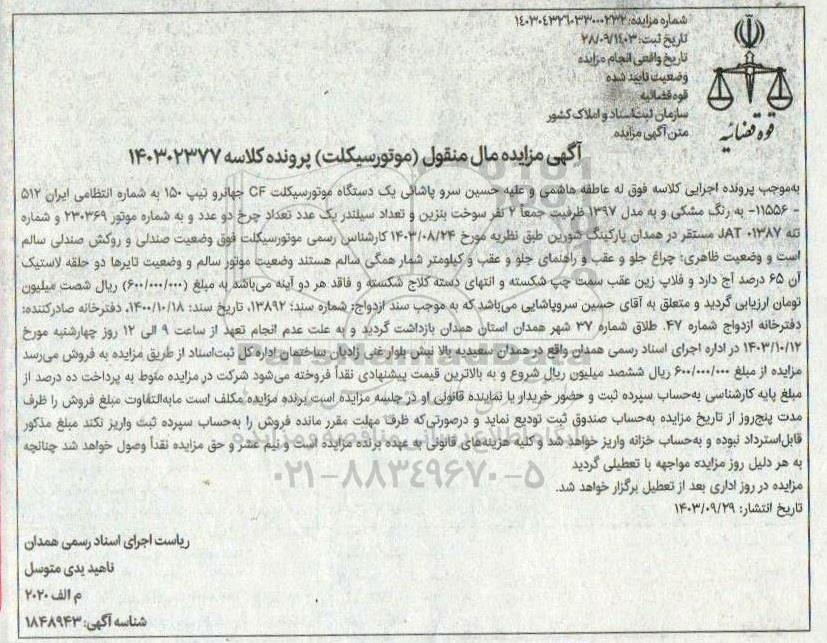 شماره مزایده: ۱۴۰۳۰۴۳۲۶۰۳۳۰۰۰۲۳۲
تاریخ ثبت: ۲۸/۰۹/۱۴۰۳
تاریخ واقعی انجام مزایده
وضعیت تایید شده
قوه قضائیه
سازمان ثبت اسناد و املاک کشور
متن آگهی مزایده
قوه قضائیه
آگهی مزایده مال منقول (موتورسیکلت) پرونده کلاسه ۱۴۰۳۰۲۳۷۷
به‌موجب پرونده اجرایی کلاسه فوق له عاطفه هاشمی و علیه حسین سرو پاشائی یک دستگاه موتورسیکلت CF جهانرو تیپ ۱۵۰ به شماره انتظامی ایران ۵۱۲
- ۱۱۵۵۶- به رنگ مشکی و به مدل ۱۳۹۷ ظرفیت جمعاً ۲ نفر سوخت بنزین و تعداد سیلندر یک عدد تعداد چرخ دو عدد و به شماره موتور ۲۳۰۳۶۹ و شماره
تنه JAT ۰۱۳۸۷ مستقر در همدان پارکینگ شورین طبق نظریه مورخ ۱۴۰۳/۰۸/۲۴ کارشناس رسمی موتورسیکلت فوق وضعیت صندلی و روکش صندلی سالم
است و وضعیت ظاهری: چراغ جلو و عقب و راهنمای جلو و عقب و کیلومتر شمار همگی سالم هستند وضعیت موتور سالم و وضعیت تایرها دو حلقه لاستیک
آن ۶۵ درصد آج دارد و فلاپ زین عقب سمت چپ شکسته و انتهای دسته کلاج شکسته و فاقد هر دو آینه می‌باشد به مبلغ (۶۰۰/۰۰۰/۰۰۰) ریال شصت میلیون
تومان ارزیابی گردید و متعلق به آقای حسین سروپاشایی می‌باشد که به موجب سند ازدواج: شماره سند: ۱۳۸۹۲، تاریخ سند: ۱۴۰۰/۱۰/۱۸، دفترخانه صادرکننده:
دفترخانه ازدواج شماره ۴۷. طلاق شماره ۳۷ شهر همدان استان همدان بازداشت گردید و به علت عدم انجام تعهد از ساعت ۹ الی ۱۲ روز چهارشنبه مورخ
۱۴۰۳/۱۰/۱۲ در اداره اجرای اسناد رسمی همدان واقع در همدان سعیدیه بالا نبش بلوار غنی زادیان ساختمان اداره کل ثبت‌اسناد از طریق مزایده به فروش می‌رسد
مزایده از مبلغ ۶۰۰/۰۰۰/۰۰۰ ریال ششصد میلیون ریال شروع و به بالاترین قیمت پیشنهادی نقداً فروخته می‌شود شرکت در مزایده منوط به پرداخت ده درصد از
مبلغ پایه کارشناسی به‌حساب سپرده ثبت و حضور خریدار یا نماینده قانونی او در جلسه مزایده است برنده مزایده مکلف است مابه‌التفاوت مبلغ فروش را ظرف
مدت پنج‌روز از تاریخ مزایده به‌حساب صندوق ثبت تودیع نماید و درصورتی‌که ظرف مهلت مقرر مانده فروش را به‌حساب سپرده ثبت واریز نکند مبلغ مذکور
قابل‌استرداد نبوده و به‌حساب خزانه واریز خواهد شد و کلیه هزینه‌های قانونی به عهده برنده مزایده است و نیم عشر و حق مزایده نقداً وصول خواهد شد چنانچه
به هر دلیل روز مزایده مواجهه با تعطیلی گردید
مزایده در روز اداری بعد از تعطیل برگزار خواهد شد.
۰۲۱-۸۸۳۴۹۶۷۰-۵
تاریخ انتشار: ۱۴۰۳/۰۹/۲۹
ریاست اجرای اسناد رسمی همدان
ناهید یدی متوسل
م الف ۲۰۲۰
شناسه آگهی: ۱۸۴۸۹۴۳